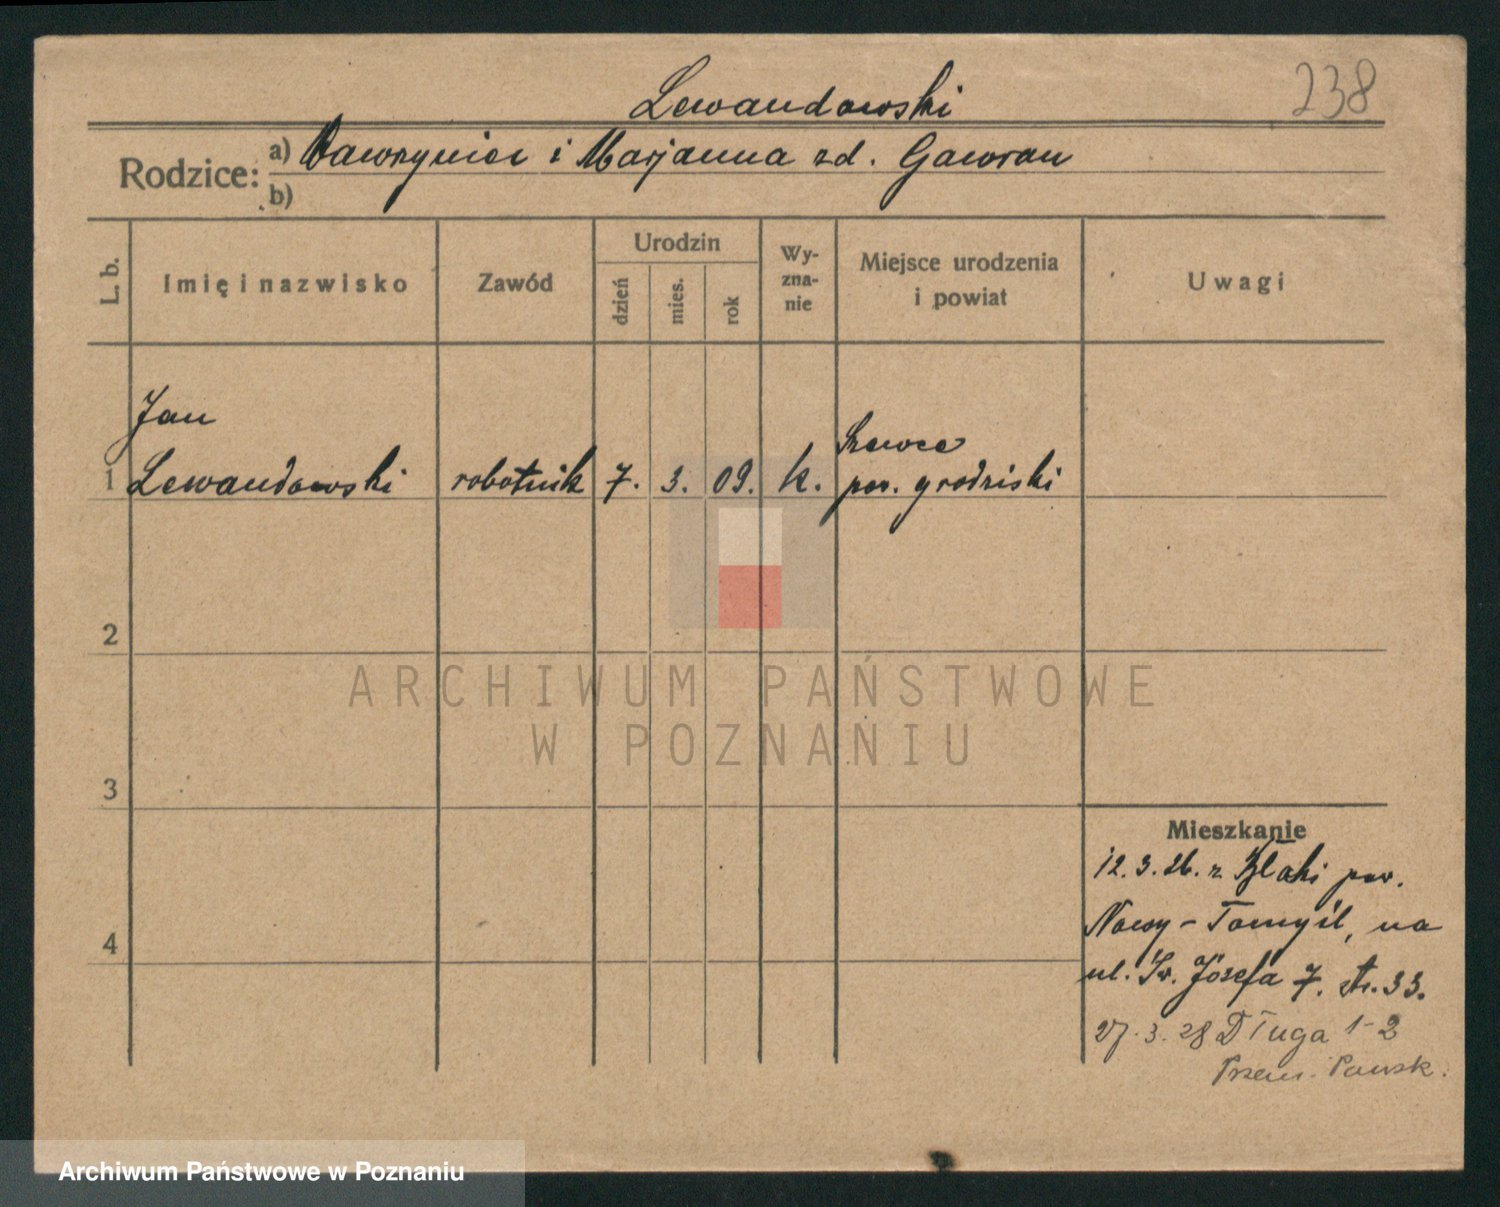 238
Lewandowski
Rodzice: a) Wawrzyniec i Marjanna zd. Gawron
b)
L. b.
Imię i nazwisko
Zawód
Urodzin
dzień
mies.
rok
Wy-
zna-
nie
Miejsce urodzenia
i powiat
Uwagi
Jan
Szewce
1 Lewandowski robotnik 7. 3. 09. k. pow. grodziski
2
ARCHIWUM PAŃSTWOWE
W POZNANIU
3
Mieszkanie
12. 3. 26. z pow.
4
Nowy-Tomyśl, na
ul. Św. Józefa 7. str. 33.
27. 3. 28 Długa 1-2
Przem.
Archiwum Państwowe w Poznaniu